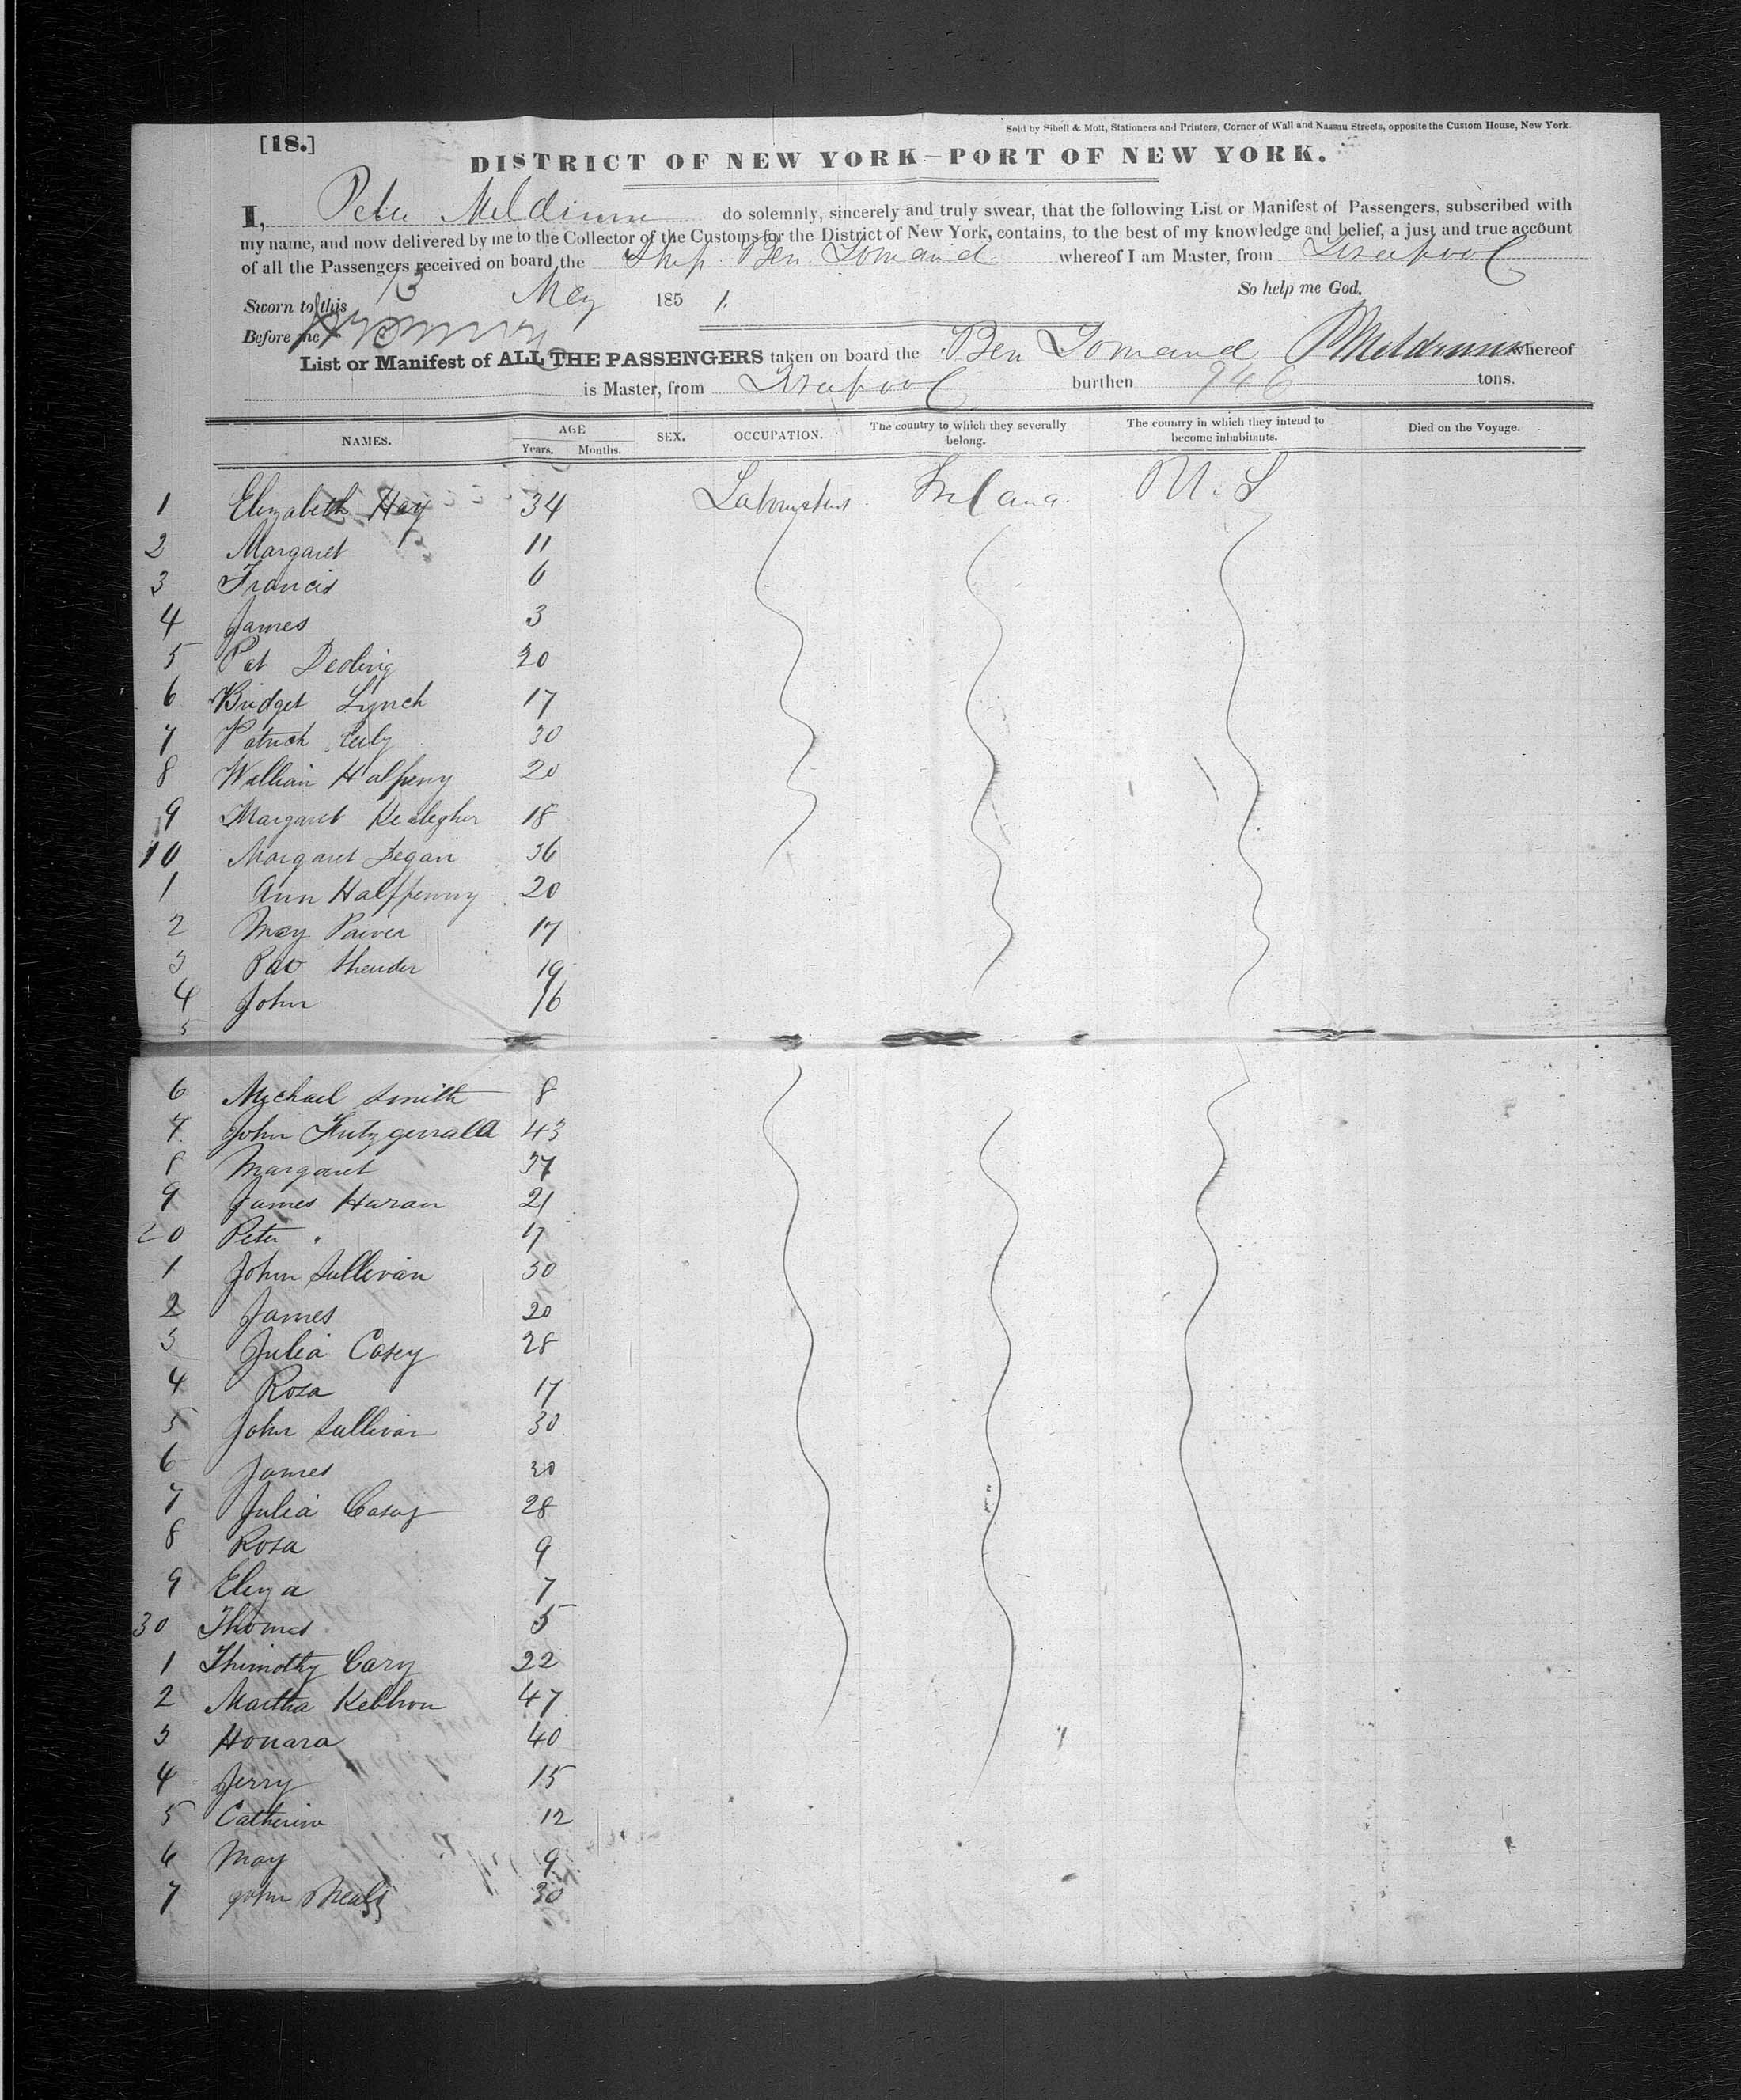 [18.]
Sold by Sibell & Mott, Stationers and Printers, Corner of Wall and Nassau Streets, opposite the Custom House, New York.
DISTRICT OF NEW YORK—PORT OF NEW YORK.
I, Peter Meldrum do solemnly, sincerely and truly swear, that the following List or Manifest of Passengers, subscribed with
my name, and now delivered by me to the Collector of the Customs for the District of New York, contains, to the best of my knowledge and belief, a just and true account
of all the Passengers received on board the Ship Ben Lomand whereof I am Master, from Liverpool
Sworn to this 13 May 1851. So help me God.
Before me
List or Manifest of ALL THE PASSENGERS taken on board the Ben Lomand P Meldrum whereof
is Master, from Liverpool burthen 946 tons.
NAMES. AGE Years. Months. SEX. OCCUPATION. The country to which they severally belong. The country in which they intend to become inhabitants. Died on the Voyage.
1 Elizabeth Hay 34 U. S
2 Margaret 11
3 Francis 6
4 James 3
5 Pat 20
6 Bridget Lynch 17
7 Patrick 30
8 William Halfpeny 20
9 Margaret 18
10 Margaret Degan 36
1 Ann Halfpenny 20
2 May 17
3 19
4 John 16
5
6 Michael Smith 8
7 John Fitzgerrald 43
8 Margaret 37
9 James Haran 21
20 Peter " 17
1 John Sullivan 30
2 James 20
3 Julia Casey 28
4 Rosa 17
5 John Sullivan 30
6 James 20
7 Julia Casey 28
8 Rosa 9
9 Eliza 7
30 Thomas 5
1 Thimothy Cary 22
2 Martha 47
3 Honara 40
4 Jerry 15
5 Catherine 12
6 May 9
7 John 30